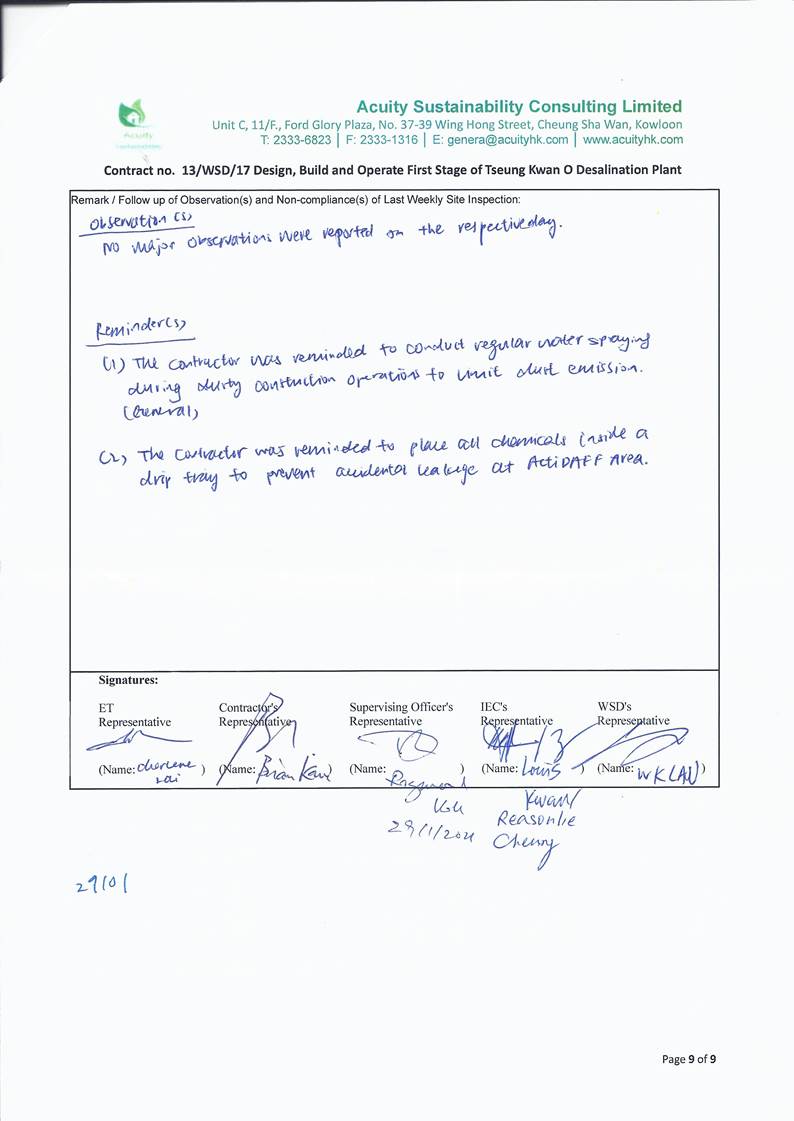 Acuity Sustainability Consulting Limited
Unit C, 11/F., Ford Glory Plaza, No. 37-39 Wing Hong Street, Cheung Sha Wan, Kowloon
T: 2333-6823 | F: 2333-1316 | E: genera@acuityhk.com | www.acuityhk.com
Acuity
Contract no. 13/WSD/17 Design, Build and Operate First Stage of Tseung Kwan O Desalination Plant
Remark / Follow up of Observation(s) and Non-compliance(s) of Last Weekly Site Inspection:
Observation(s)
No major observations were reported on the respective day.
Reminder(s)
(1) The contractor was reminded to conduct regular water spraying
during dusty construction operations to limit dust emission.
(General)
(2) The contractor was reminded to place all chemicals inside a
drip tray to prevent accidental leakage at ActiDAFF Area.
Signatures:
ET Contractor's Supervising Officer's IEC's WSD's
Representative Representative Representative Representative Representative
(Name: ) (Name: Brian ) (Name: ) (Name: Louis ) (Name: WK LAU )
Kwan
29/1/2021
Cheung
29/01
Page 9 of 9